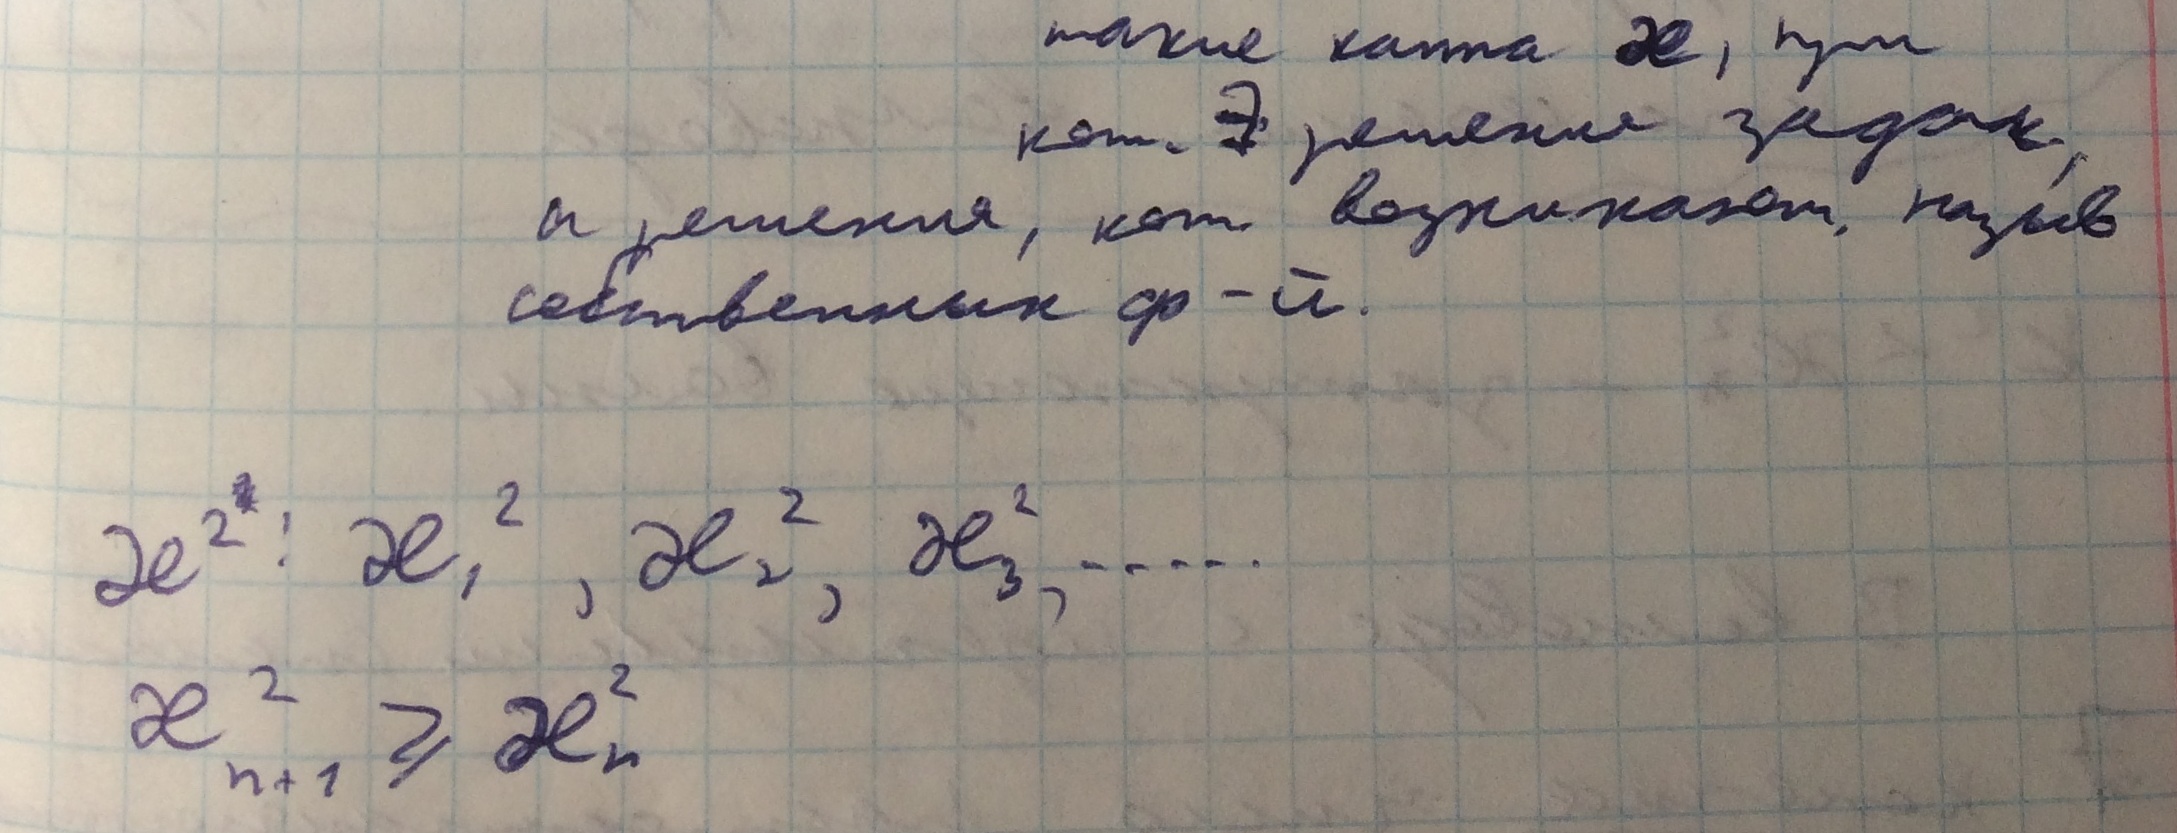 такие каппа ϰ, при
кот. ∃ решения задач,
а решения, кот. возникают, назыв
собственных ф-й.
ϰ²: ϰ₁², ϰ₂², ϰ₃², ......
ϰ²ₙ₊₁ ⩾ ϰₙ²